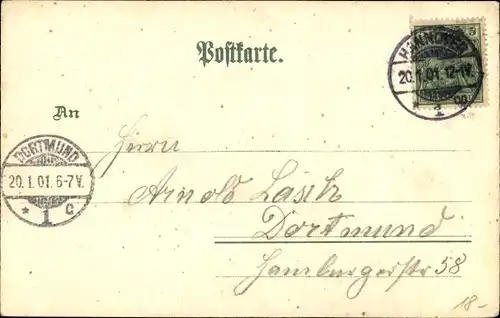 Postkarte.
5
HANNOVER
20.1.01. 12-1V.
* 1 cc
An
DORTMUND
20.1.01. 6-7V.
* 1 c
Herrn
Arnold Läsch
Dortmund
Hamburgerstr 58
18-